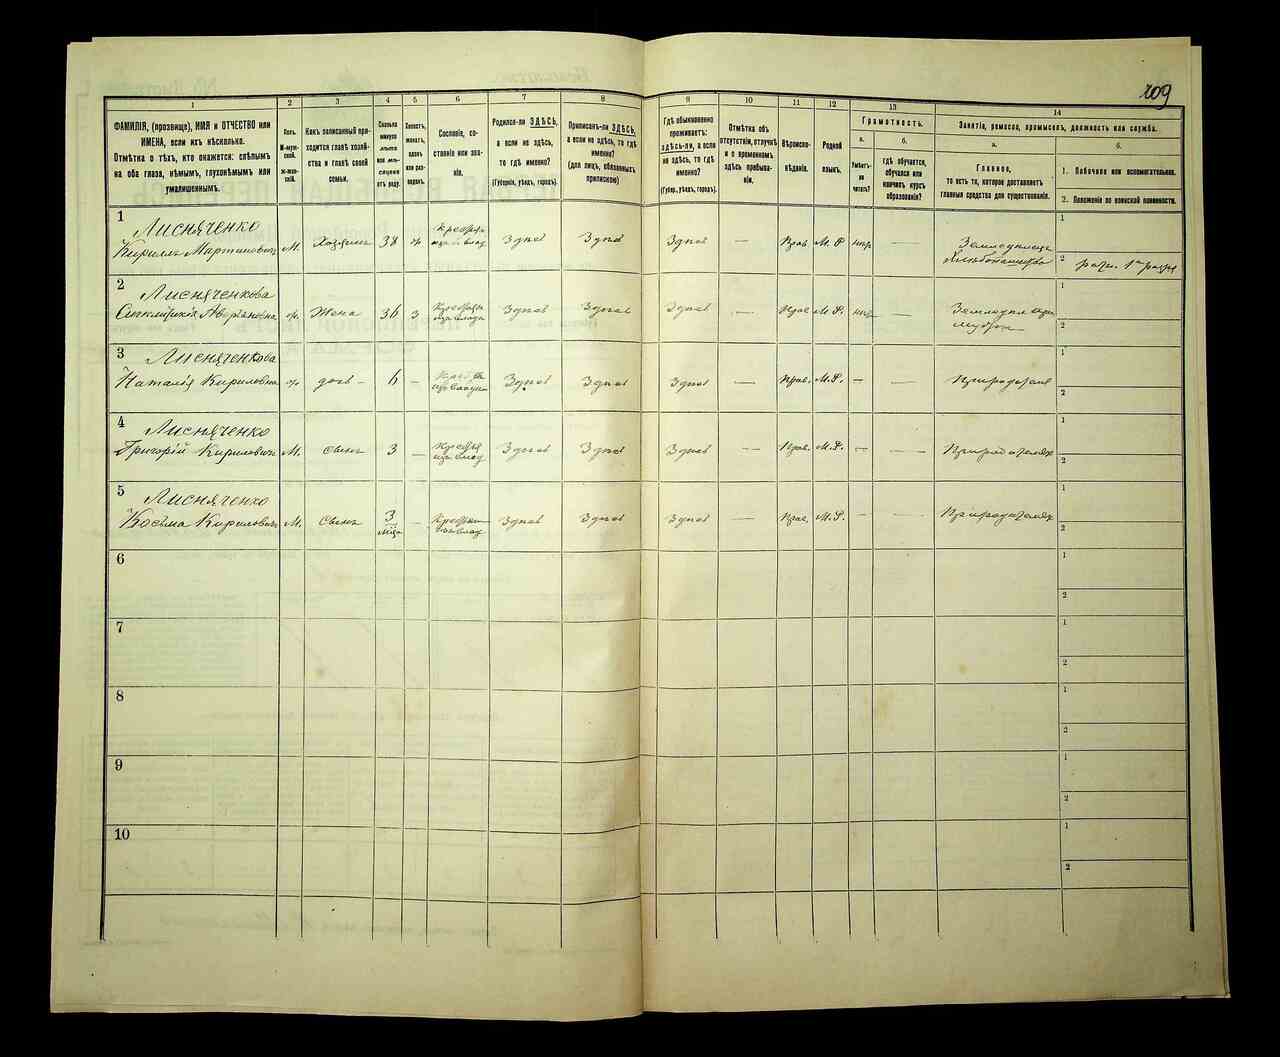 209
1 2 3 4 5 6 7 8 9 10 11 12 13 14
ФАМИЛІЯ, (прозвище), ИМЯ и ОТЧЕСТВО или
ИМЕНА, если ихъ нѣсколько.
Отмѣтка о тѣхъ, кто окажется: слѣпымъ
на оба глаза, нѣмымъ, глухонѣмымъ или
умалишеннымъ.
Полъ.
М-муж-
ской.
Ж-жен-
скій.
Какъ записанный при-
ходится главѣ хозяй-
ства и главѣ своей
семьи.
Сколько
минуло
лѣтъ
или мѣ-
сяцевъ
отъ роду.
Холостъ,
женатъ,
вдовъ
или раз-
веденъ.
Сословіе, со-
стояніе или зва-
ніе.
Родился-ли ЗДѢСЬ,
а если не здѣсь,
то гдѣ именно?
(Губернія, уѣздъ, городъ).
Приписанъ-ли ЗДѢСЬ,
а если не здѣсь, то гдѣ
именно?
(для лицъ, обязанныхъ
припискою)
Гдѣ обыкновенно
проживаетъ:
здѣсь-ли, а если
не здѣсь, то гдѣ
именно?
(Губер., уѣздъ, городъ).
Отмѣтка объ
отсутствіи, отлучкѣ
и о временномъ
здѣсь пребыва-
ніи.
Вѣроиспо-
вѣданіе.
Родной
языкъ.
Грамотность.
а.
Умѣетъ-
ли
читать?
б.
гдѣ обучается,
обучался или
кончилъ курсъ
образованія?
Занятіе, ремесло, промыселъ, должность или служба.
а.
Главное,
то есть то, которое доставляетъ
главныя средства для существованія.
б.
1. Побочное или вспомогательное.
2. Положеніе по воинской повинности.
1 Лисняченко
Кириллъ Мартиновичъ М. Хозяинъ 38 Здѣсь Здѣсь Здѣсь — Прав. М. Р. —
Земледѣлецъ
Хлѣбопашество
1
2
2 Лисняченкова
Жена 36 Здѣсь Здѣсь Здѣсь — Прав. М. Р. —
1
2
3 Лисняченкова
Наталія Кириловна дочь – 6 — Здѣсь Здѣсь Здѣсь — Прав. М. Р. — —
1
2
4 Лисняченко
Григорій Кириловичъ М. Сынъ 3 — Здѣсь Здѣсь Здѣсь — Прав. М. Р. — —
1
2
5 Лисняченко
Косьма Кириловичъ М. Сынъ 3 — Здѣсь Здѣсь Здѣсь — Прав. М. Р. — —
1
2
6
1
2
7
1
2
8
1
2
9
1
2
10
1
2